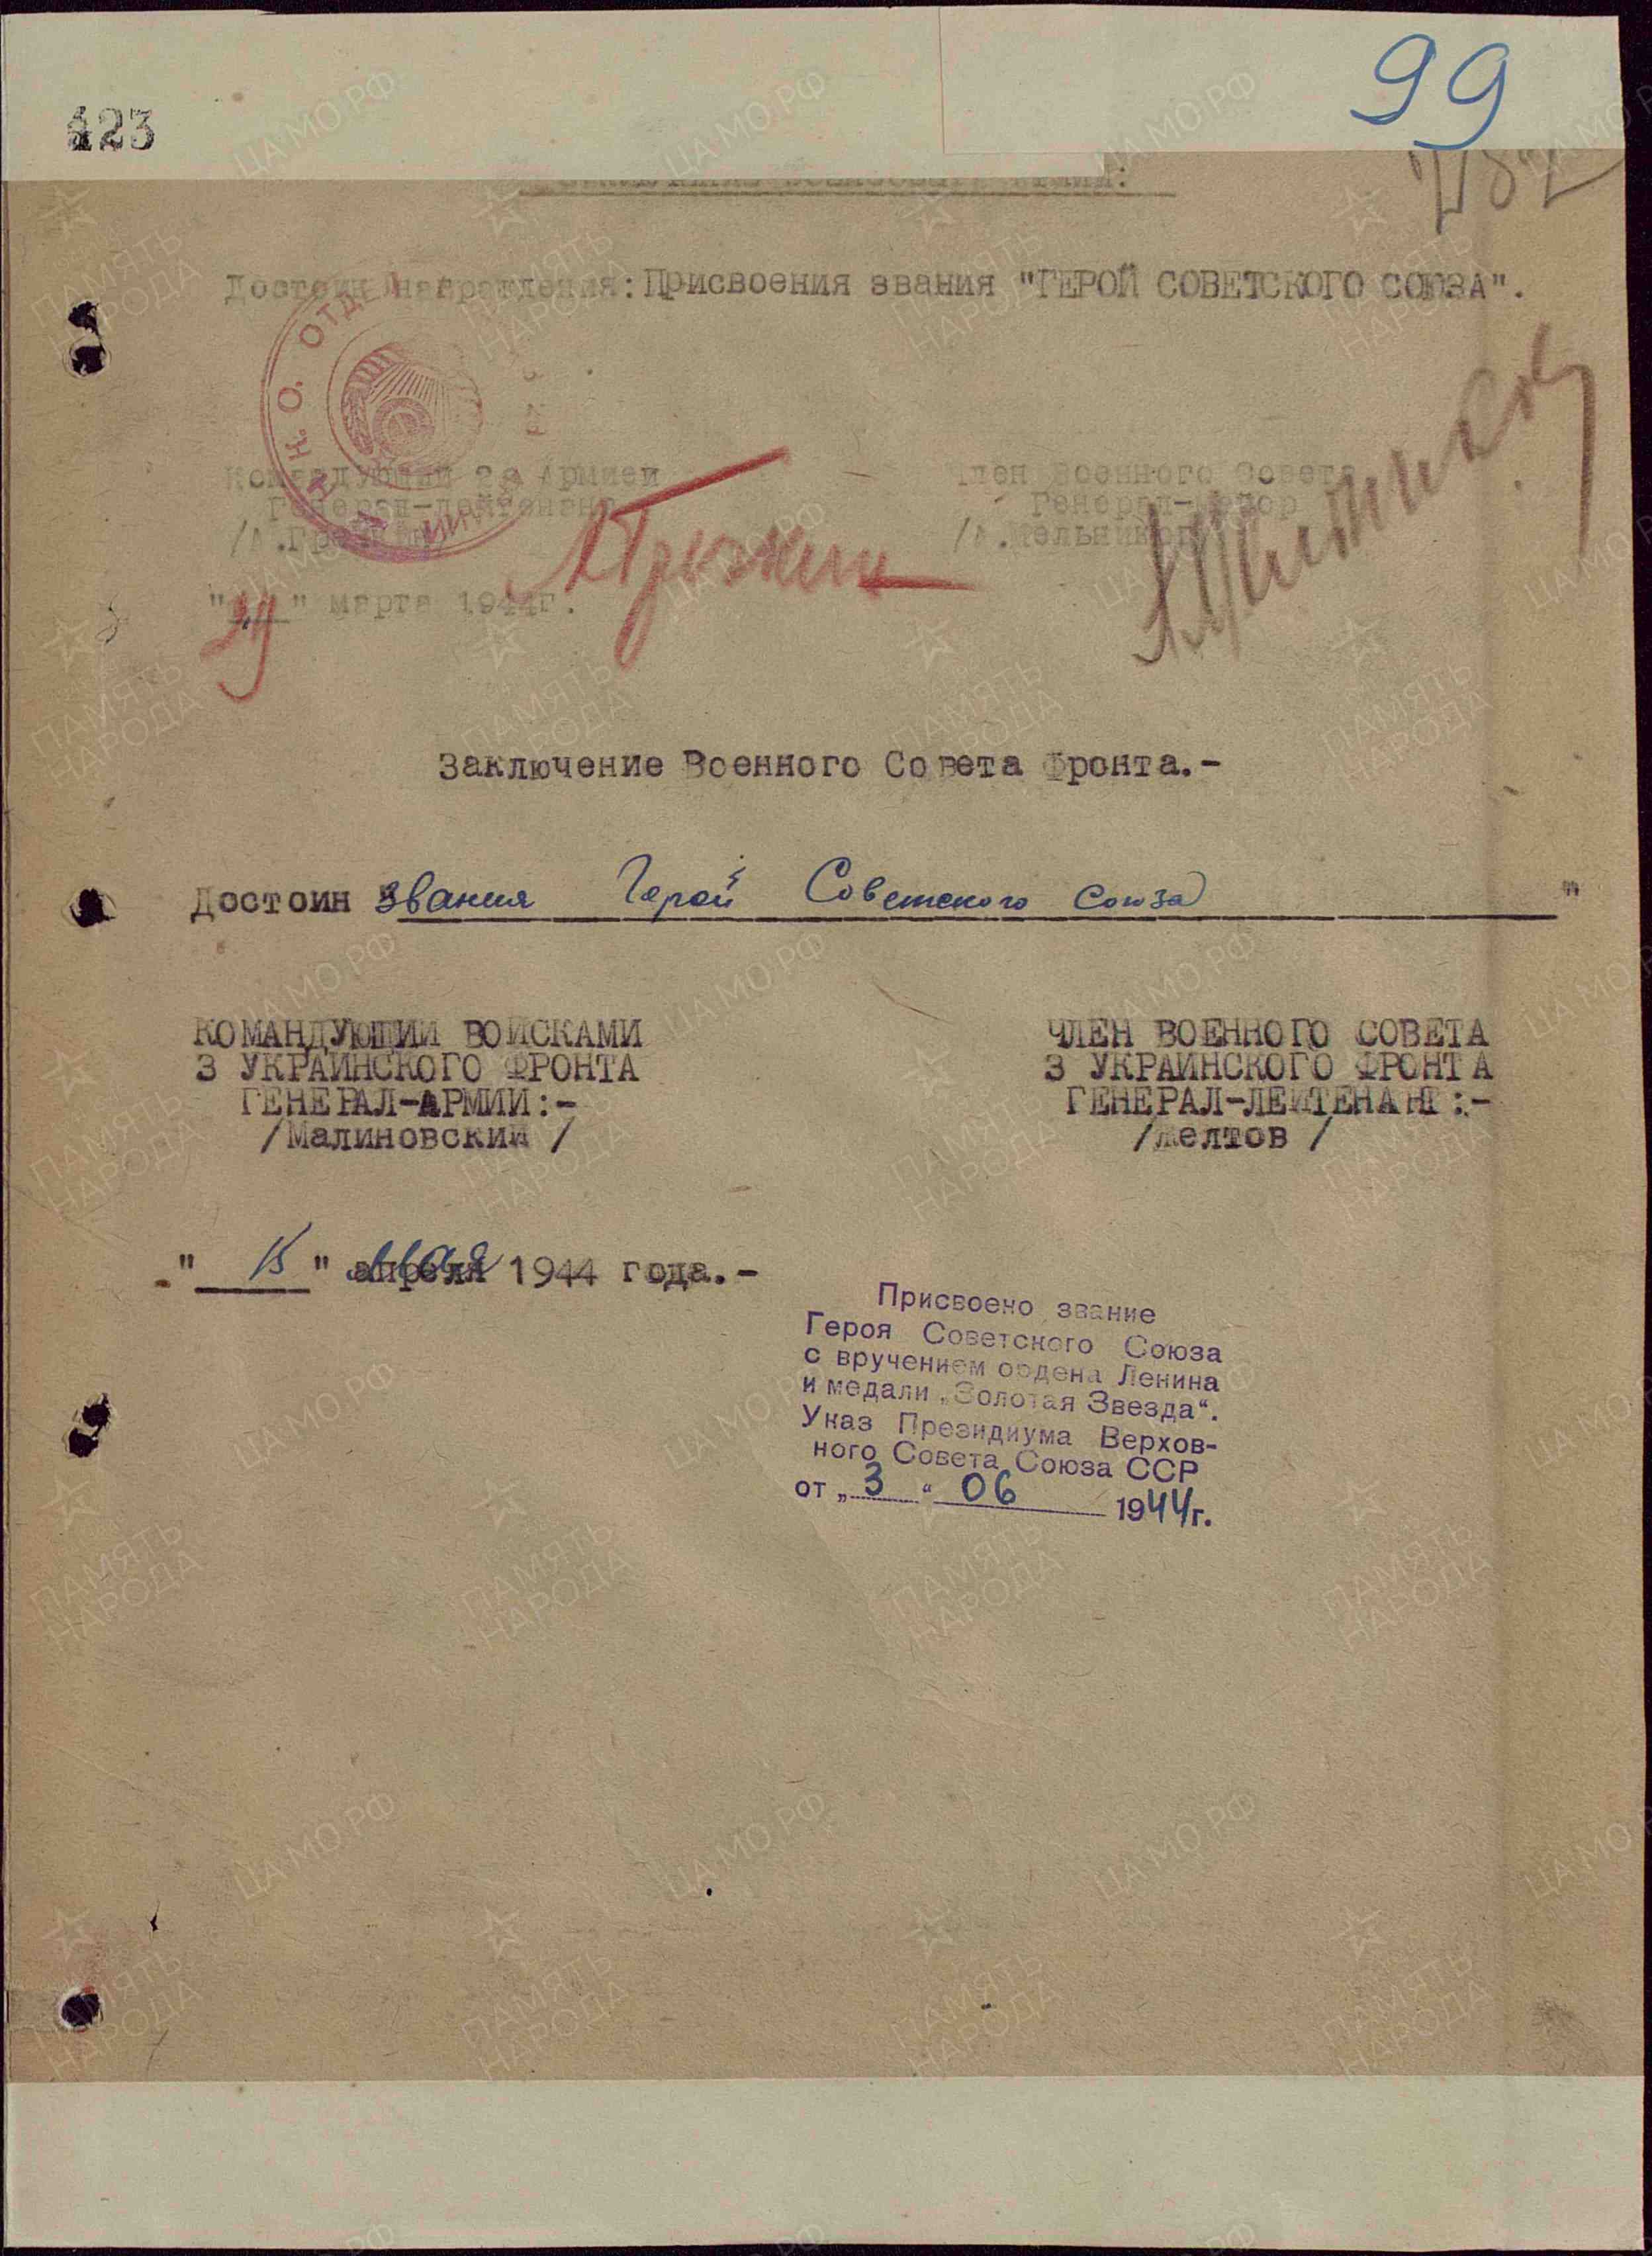 99
423
Достоин награждения: Присвоения звания "ГЕРОЙ СОВЕТСКОГО СОЮЗА".
Н. К. О. ОТДЕЛ
Командующий 28 Армией
Генерал-лейтенант
Член Военного Совета
Генерал-майор
/А.Мельников/
"29" марта 1944г.
Заключение Военного Совета Фронта.-
Достоин звания Герой Советского Союза "
КОМАНДУЮЩИЙ ВОЙСКАМИ
3 УКРАИНСКОГО ФРОНТА
ГЕНЕРАЛ-АРМИИ:-
/Малиновский /
ЧЛЕН ВОЕННОГО СОВЕТА
3 УКРАИНСКОГО ФРОНТА
ГЕНЕРАЛ-ЛЕЙТЕНАНТ:-
/Желтов /
" 15 " мая 1944 года.-
Присвоено звание
Героя Советского Союза
с вручением ордена Ленина
и медали „Золотая Звезда“.
Указ Президиума Верхов-
ного Совета Союза ССР
от „ 3 “ 06 1944г.
ПАМЯТЬ НАРОДА
ЦАМО.РФ